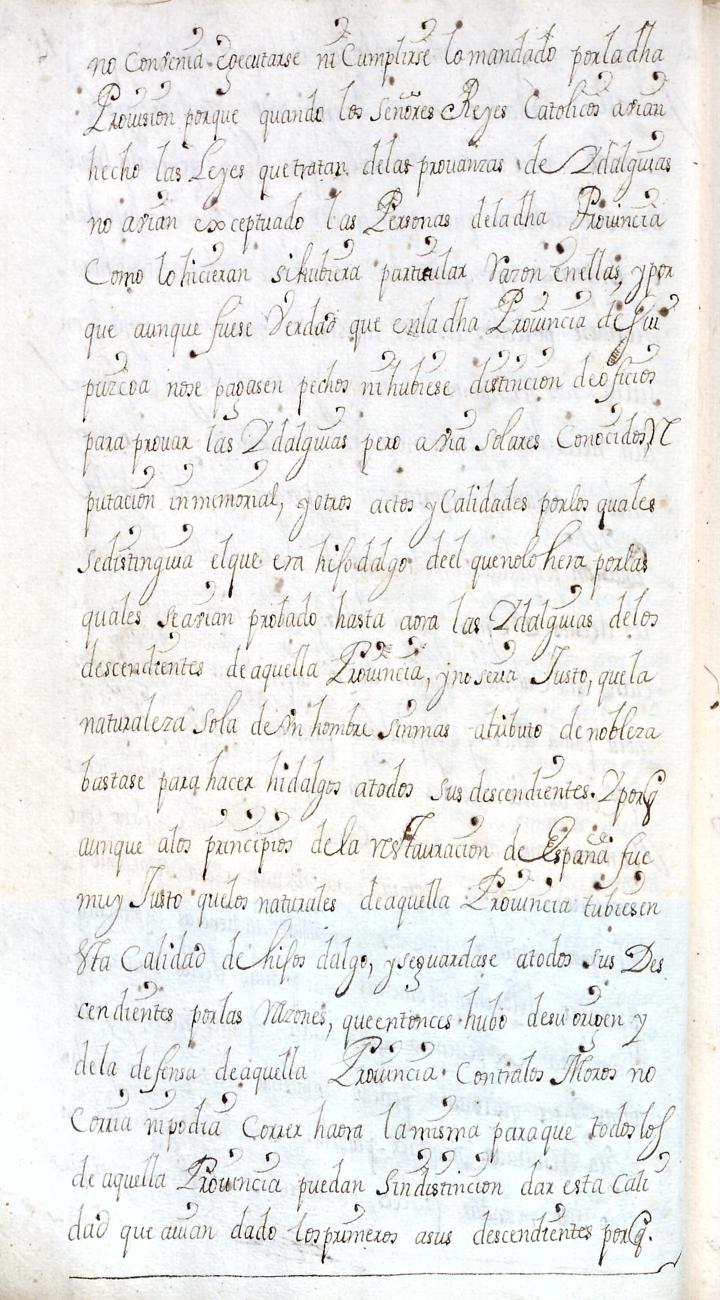 no Convenia egecutarse ni Cumplirse lo mandado por la dha
Provision porque quando los Señores Reyes Catolicos avian
hecho las Leyes que tratan de las provanzas de Ydalguias
no avian exceptuado las Personas de la dha Provincia
Como lo hicieran si hubiera particular Razon en ellas, y por
que aunque fuese Verdad que en la dha Provincia de Gui
puzcoa no se pagasen pechos ni hubiese distincion de oficios
para provar las Ydalguias pero avia Solares Conocidos, Re
putacion inmemorial, y otros actos y Calidades por los quales
se distinguia el que era hijodalgo de el que no lo hera por las
quales se avian probado hasta aora las Ydalguias de los
descendientes de aquella Provincia, y no seria Justo, que la
naturaleza Sola de Un hombre sin mas atributo de nobleza
bastase para hacer hidalgos a todos sus descendientes. Y porq
aunque a los principios de la restauracion de España fue
muy Justo que los naturales de aquella Provincia tubiesen
esta Calidad de hijos dalgo, y se guardase a todos sus Des
cendientes por las Razones, que entonces hubo de su origen y
de la defensa de aquella Provincia Contra los Moros no
Corria ni podia Correr haora la misma para que todos los
de aquella Provincia puedan Sin distincion dar esta Cali
dad que avian dado los primeros a sus descendientes porq.